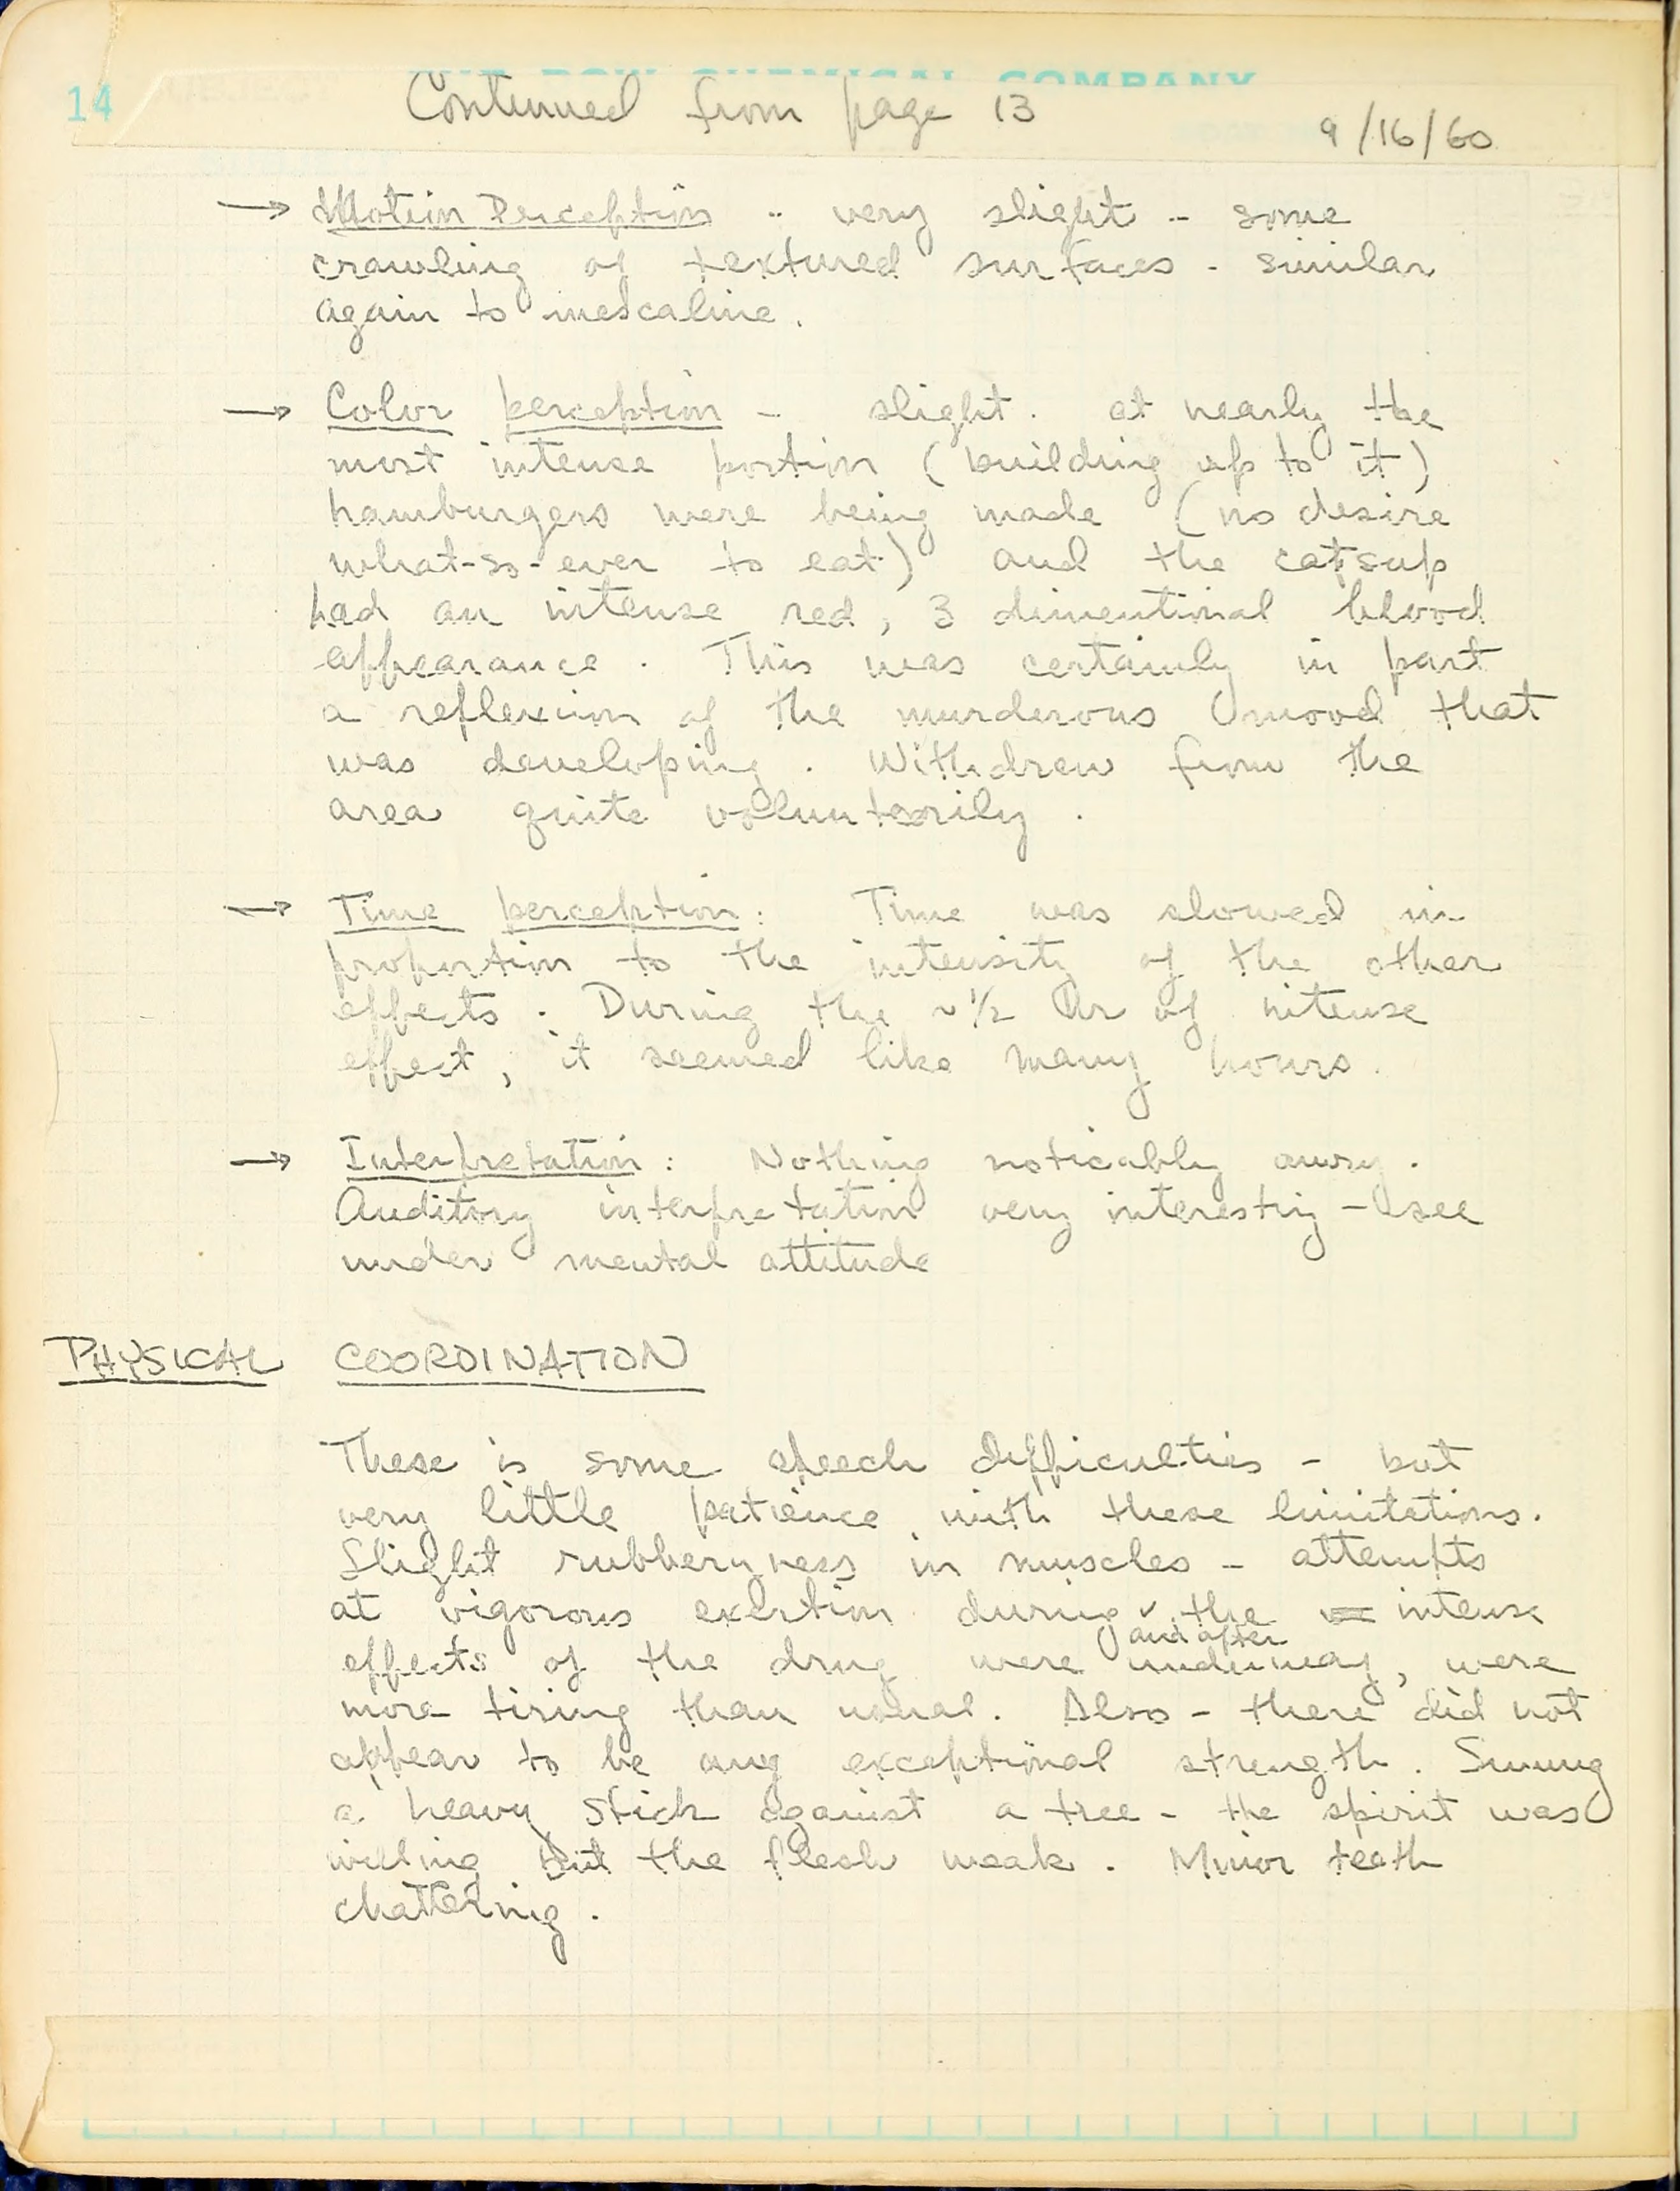 THE DOW CHEMICAL COMPANY
14
Continued from page 13
9/16/60
→ Motion Perception -- very slight -- some
crawling of textured surfaces - similar
again to mescaline.
→ Color perception - slight. at nearly the
most intense portion (building up to it)
hamburgers were being made (no desire
what-so-ever to eat) and the catsup
had an intense red, 3 dimentional blood
appearance. This was certainly in part
a reflexion of the murderous mood that
was developing. Withdrew from the
area quite voluntarily.
→ Time perception: Time was slowed in
proportion to the intensity of the other
effects. During the ~ 1/2 hr of intense
effect, it seemed like many hours.
→ Interpretation: Nothing noticably awry.
Auditory interpretation very interesting - see
under mental attitude
PHYSICAL COORDINATION
There is some speech difficulties - but
very little patience with these limitations.
Slight rubberyness in muscles - attempts
at vigorous exertion during the intense
and after
effects of the drug were underway, were
more tiring than usual. Also - there did not
appear to be any exceptional strength. Swung
a heavy stick against a tree - the spirit was
willing but the flesh weak. Minor teeth
chattering.